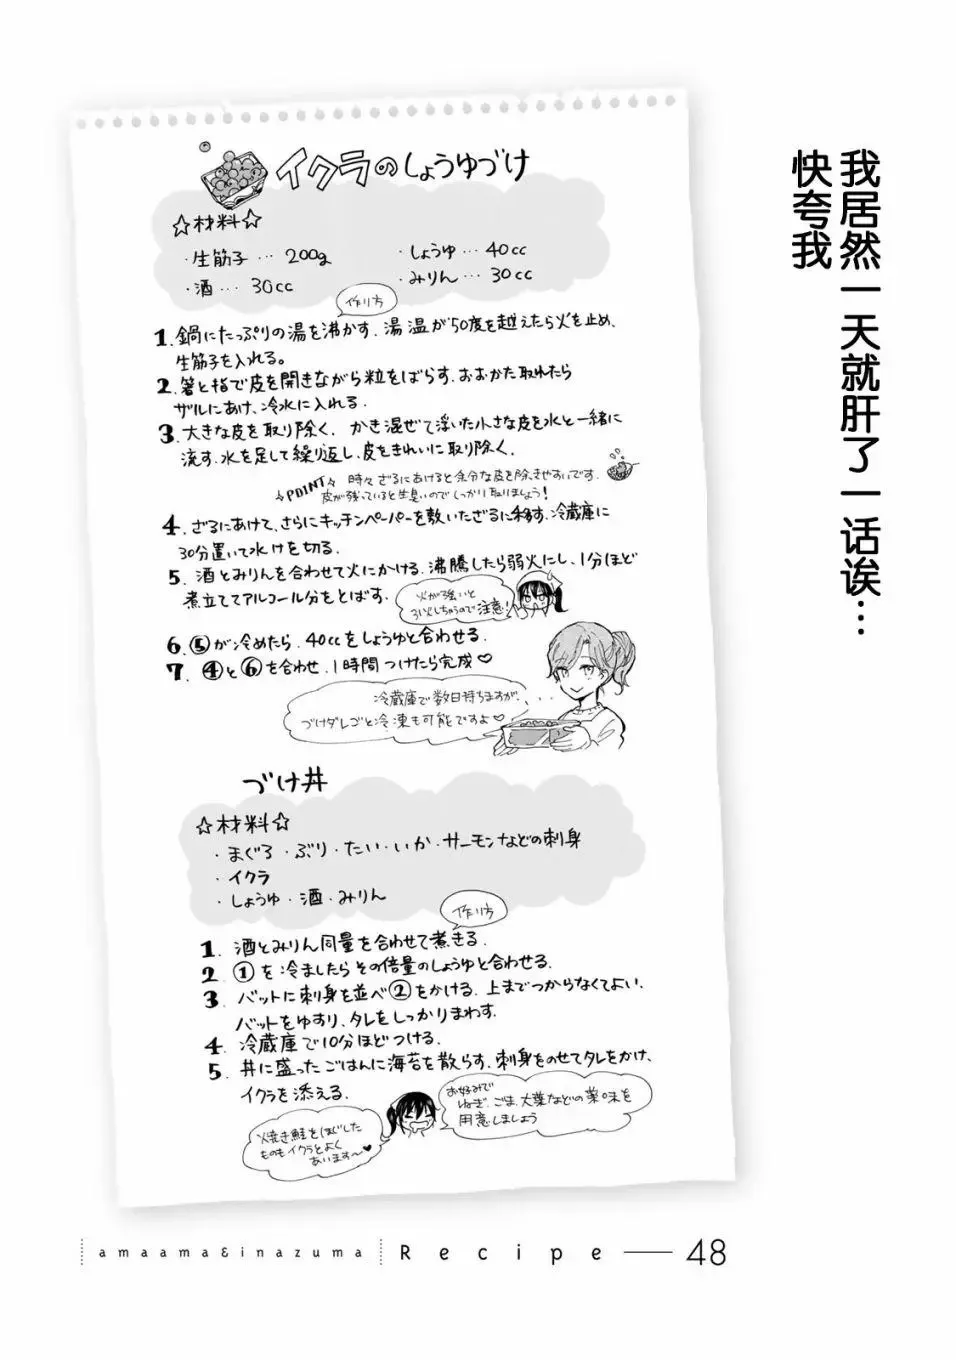 我居然一天就肝了一话诶…
快夸我
イクラのしょうゆづけ
☆材料☆
・生筋子… 200g
・しょうゆ… 40cc
・酒… 30cc
・みりん… 30cc
作り方
1. 鍋にたっぷりの湯を沸かす. 湯温が50度を越えたら火を止め、
生筋子を入れる。
2. 箸と指で皮を開きながら粒をばらす. おおかた取れたら
ザルにあけ、冷水に入れる.
3. 大きな皮を取り除く. かき混ぜて浮いた小さな皮を水と一緒に
流す. 水を足して繰り返し、皮をきれいに取り除く.
POINT 時々ざるにあけると余分な皮を除きやすいです.
皮が残っていると生臭いのでしっかり取りましょう!
4. ざるにあけて、さらにキッチンペーパーを敷いたざるに移す. 冷蔵庫に
30分置いて水けを切る.
5. 酒とみりんを合わせて火にかける. 沸騰したら弱火にし、1分ほど
煮立ててアルコール分をとばす.
火が強いと
引火しちゃうので注意!
6. ⑤が冷めたら、40ccをしょうゆと合わせる.
7. ④と⑥を合わせ、1時間つけたら完成♡
冷蔵庫で数日持ちますが、...
づけダレごと冷凍も可能ですよ♡
づけ丼
☆材料☆
・まぐろ・ぶり・たい・いか・サーモンなどの刺身
・イクラ
・しょうゆ・酒・みりん
作り方
1. 酒とみりん同量を合わせて煮きる.
2. ①を冷ましたらその倍量のしょうゆと合わせる.
3. バットに刺身を並べ②をかける. 上までつからなくてよい.
バットをゆすり、タレをしっかりまわす.
4. 冷蔵庫で10分ほどつける.
5. 丼に盛ったごはんに海苔を散らす. 刺身をのせてタレをかけ、
イクラを添える.
お好みで
ねぎ、ごま、大葉などの薬味を
用意しましょう
焼き鮭をほぐした
ものもイクラとよく
あいます〜♥
amaama&inazuma Recipe — 48